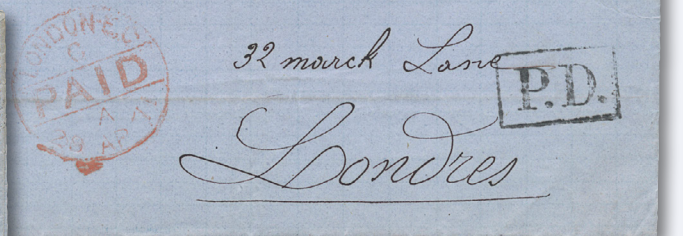 LONDON-E.C
C
PAID
A
29 AP 71
32 march Lane
P.D.
Londres